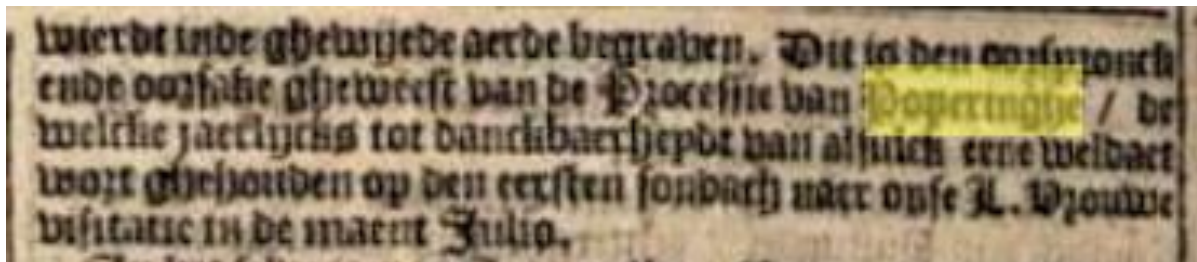 wierdt inde ghewijede aerde begraven. Dit is den oorspronck
ende oorsake gheweest van de Processie van Poperinghe / de
welcke jaerlijcks tot danckbaerheydt van alsulck eene weldaet
wort ghehouden op den eersten sondach naer onse L. Vrouwe
visitatie in de maent Julio.